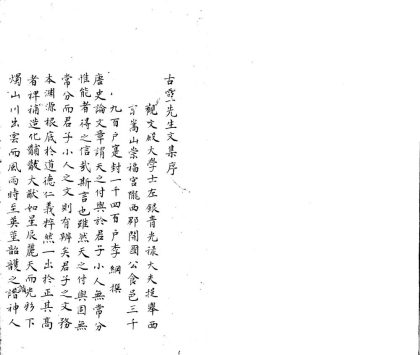 古靈先生文集序
觀文殿大學士左銀青光祿大夫提舉西
京嵩山崇福宮隴西郡開國公食邑三千
九百戶寔封一千四百戶李綱撰
唐史論文章謂天之付與於君子小人無常分
惟能者得之信哉斯言也雖然天之付與固無
常分而君子小人之文則有辨矣君子之文務
本淵源根底於道德仁義粹然一出於正其高
者裨補造化黼黻大猷如星辰麗天而光彩下
燭山川出雲而風雨時至英莖韶頀之諧神人